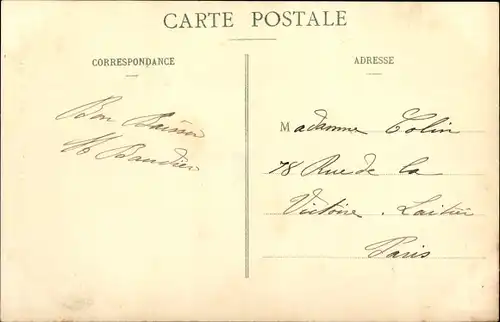 CARTE POSTALE
CORRESPONDANCE
ADRESSE
Bon Baiser
Baudier
Madamme Colin
78 Rue de la
Victoire. Laitier
Paris